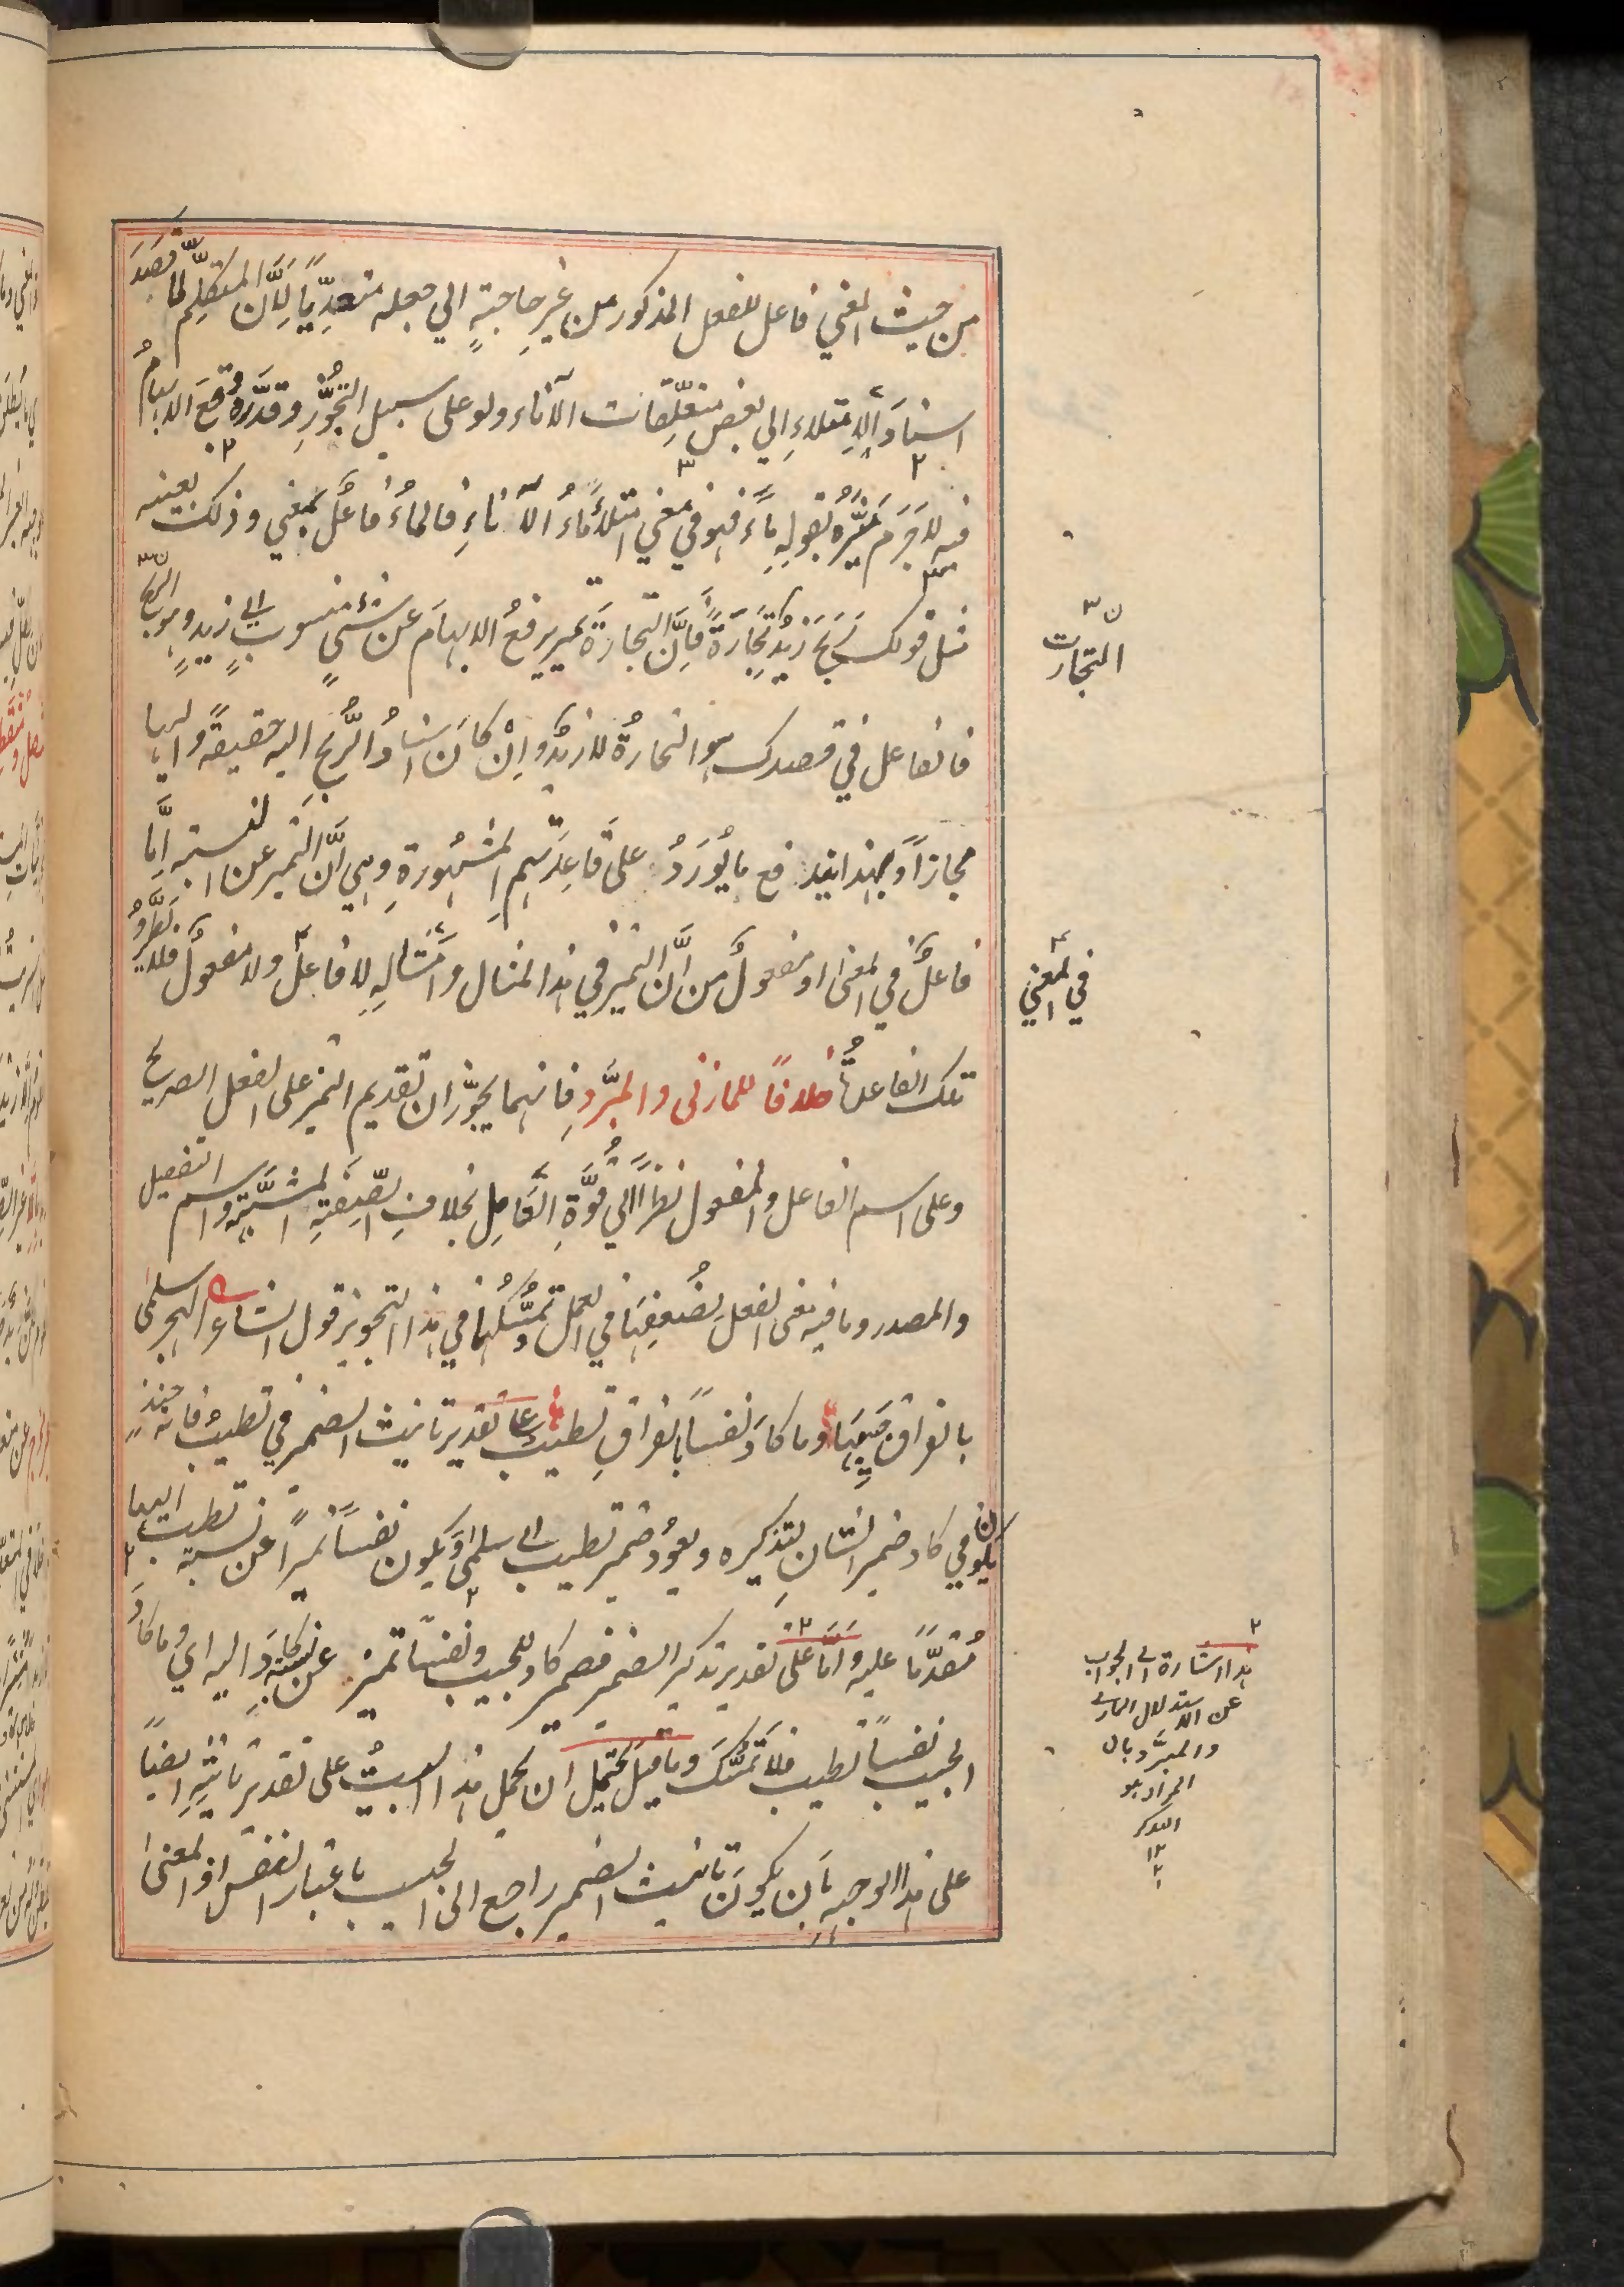 من حيث المعني فاعل للفعل المذكور من غيرِ حاجةٍ الي جعله متعدِّيًا لِاَنَّ المتكلِّم لمّا قصَدَ
اسنادَ الاِمتلاءِ الي بعض متعلِّقات الآناء ولو على سبيل التجُّوزِ وقدَّرهُ وقعَ الابهامُ
فيه لاجَرَمَ ميَّزهُ بقولِهِ ماءً فهو في معني امتلأ ماءُ الآناءِ فالماءُ فاعلٌ بمعني وذلك بعينه
مثل قولك ربحَ زيدٌ تِجارَةً فاِنَّ التجارةَ تميز يرفعُ الابهامَ عن شئٍ منسوبٍ الي زيدٍ وهو الربح
فالفاعل في قصدك هو التجارةُ لا زيدٌ واِنْ كانَ اسنادُ الرِّبحِ اليه حقيقةً واليها
مجازاً وبهذا يندفع ما يُورَدُ على قاعِدَتِهِم المشهُورةِ وهي اَنَّ التميز عن النسبة اِمَّا
فاعلٌ في المعنى او مفعولٌ من اَنَّ التميز في هذا المثال واَمثالِهِ لا فاعلٌ ولا مفعولٌ فلا تطَّردُ
تلك القاعدةُ خلافًا للمازنى والمبرَّدِ فانهما يجوّزان تقديم التميز على الفعل الصريح
وعلى اسم الفاعل والمفعول نظراً الي قُوَّةِ العَامِل بخلافِ الصِّفَةِ المشبَّهةِ واسم التفضيل
والمصدر وما فيه معنى الفعل لِضُعفِها في العمل وتمسُّكُهما في هذا التجويز قول الشاعر اتهجر سلمى
بالفراق حبيبَها وما كادَ نفساً بالفراقِ تطيب على تقدير تانيث الضمير في تطيب فانه حينئذٍ
يكون في كاد ضمير الشانِ لتذكيره ويعودُ ضمير تطيب الي سلمى ويكون نفساً تميزاً عن نسبة تطيب اليها
مُقدَّمًا عليه واَمَّا على تقدير تذكير الضمير فضمير كاد للحبيب ونفسًا تميز عن نسبة كادَ اليه اي وما كادَ
الحبيب نفساً تطيب فلا تَمسُّكَ وما قيلَ يحتمِل ان يحمل هذا البيتُ على تقدير تانيثِهِ ايضاً
على هذا الوجهِ بَاَن يكونَ تانيث الضمير راجع الى الحبيب باعتبار النفس اذ المعنى
التجارت
في المعني
هذا اشارة الي الجواب
عن الاستدلال المازني
والمبرَّد بان
المراد هو
التذكير
١٢